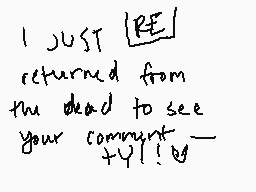 I JUST [RE]
returned from
the dead to see
your comment —
ty!!